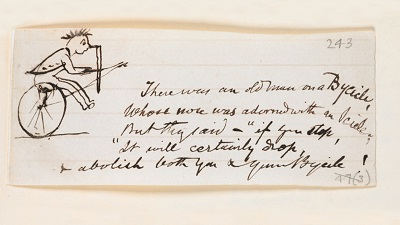 243
There was an old man on a Bycicle,
Whose nose was adorned with an Icicle;
But they said – "if you stop,
"It will certainly drop,
& abolish both you & your Bycicle!
44(3)